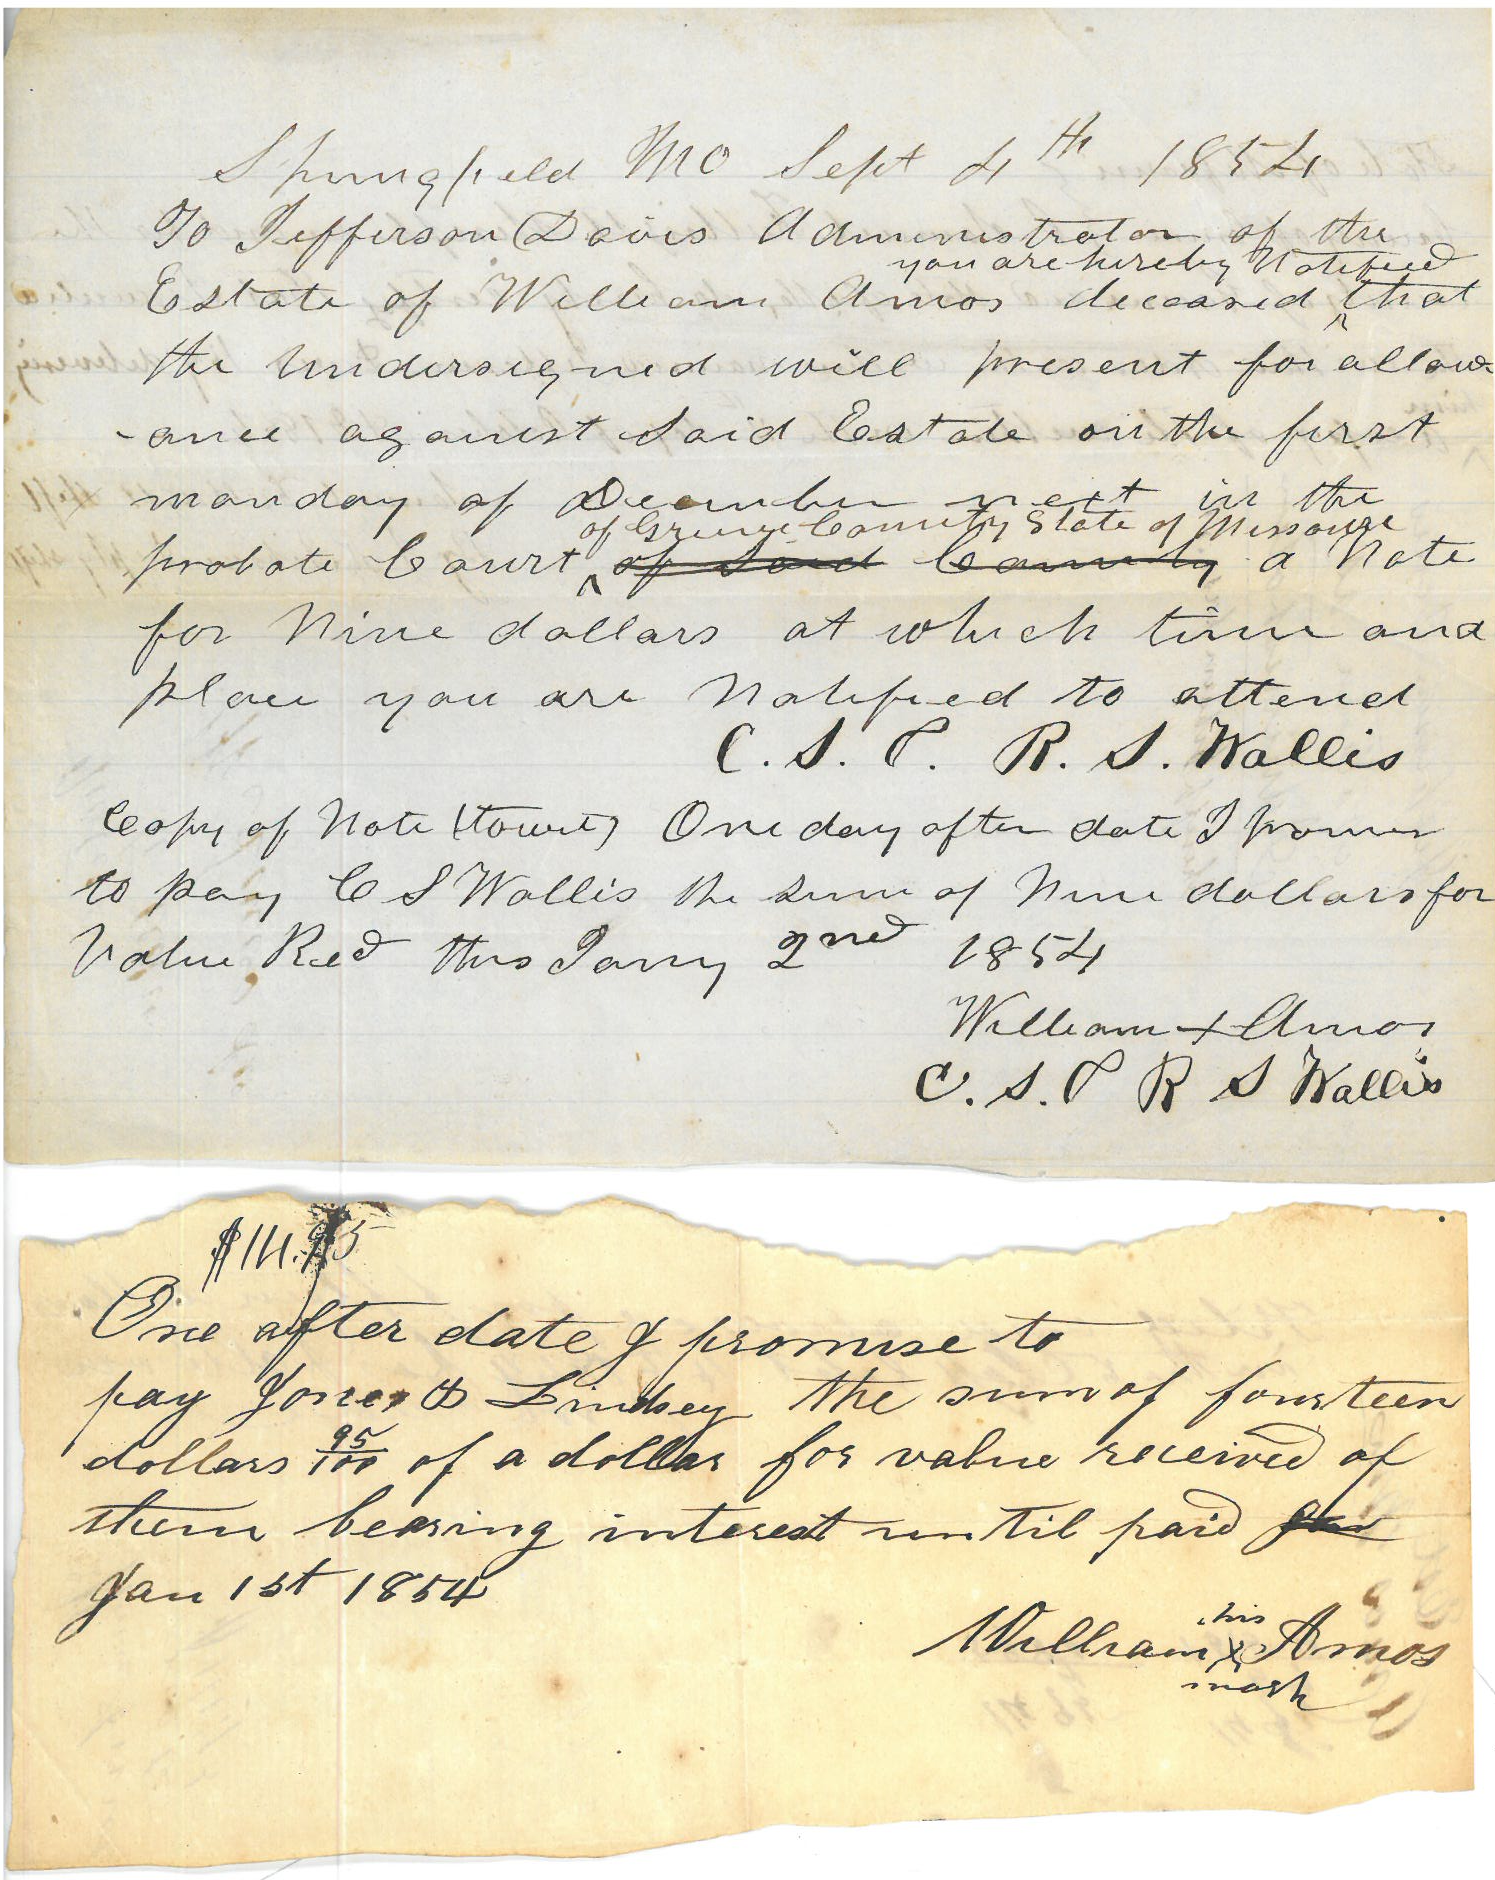 Springfield MO Sept 4th 1854
To Jefferson Davis Administrator of the
you are hereby Notified
Estate of William Amos deceased ^ that
the undersigned will present for allow
-ance against Said Estate on the first
monday of December next in the
of Greene County State of Missourie
probate Court ^ of Said County a Note
for Nine dollars at which time and
place you are Notified to attend
C. S. & R. S. Wallis
Copy of Note (towit) One day after date I promis
to pay C S Wallis the sum of Nine dollars for
Value Recd this Jany 2nd 1854
William + Amos
C. S. & R S Wallis
$14.95
One after date I promise to
pay Jones & Lindsey the sum of fourteen
dollars 95/100 of a dollar for value received of
them bearing interest until paid Jan
Jan 1st 1854
his
William X Amos
mark